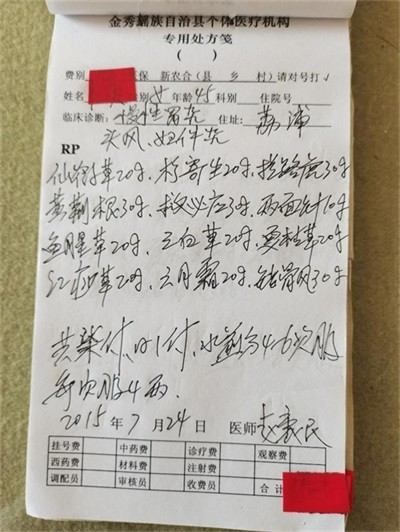 金秀瑶族自治县个体医疗机构
专用处方笺
( )
费别 医保 新农合(县 乡 村)请对号打√
姓名 性别 女 年龄 45 科别 住院号
临床诊断: 慢性胃炎 住址: 荔浦
头风、妇件炎
RP
仙鹤草20g、桑寄生20g、拦路虎30g
黄荆根30g、救必应3g、两面针10g
鱼腥草20g、三白草20g、夏枯草20g
草20g、六月霜20g、30g
共柒付、日1付、水煎分4-6次服
每次服4两
2015年7月24日 医师
挂号费 中药费 诊疗费 观察费
西药费 材料费 注射费
调配员 审核员 收费员 合计